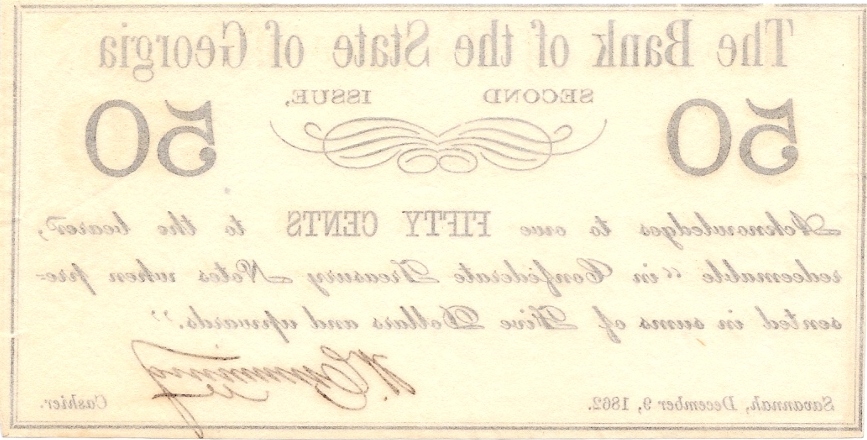 The Bank of the State of Georgia
SECOND ISSUE,
50 50
Acknowledges to owe FIFTY CENTS to the bearer,
redeemable "in Confederate Treasury Notes when pre-
sented in sums of Five Dollars and upwards."
W. Cumming
Savannah, December 9, 1862. Cashier.